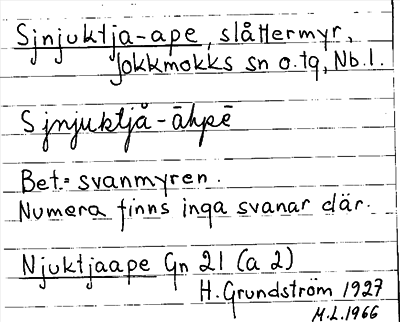 Sjnjuktja-ape, slåttermyr,
Jokkmokks sn o. tg, Nb. l.
Sjnjuktjå-āhpē
Bet.= svanmyren.
Numera finns inga svanar där.
Njuktjaape Gn 21 (a 2)
H. Grundström 1927
M.L. 1966